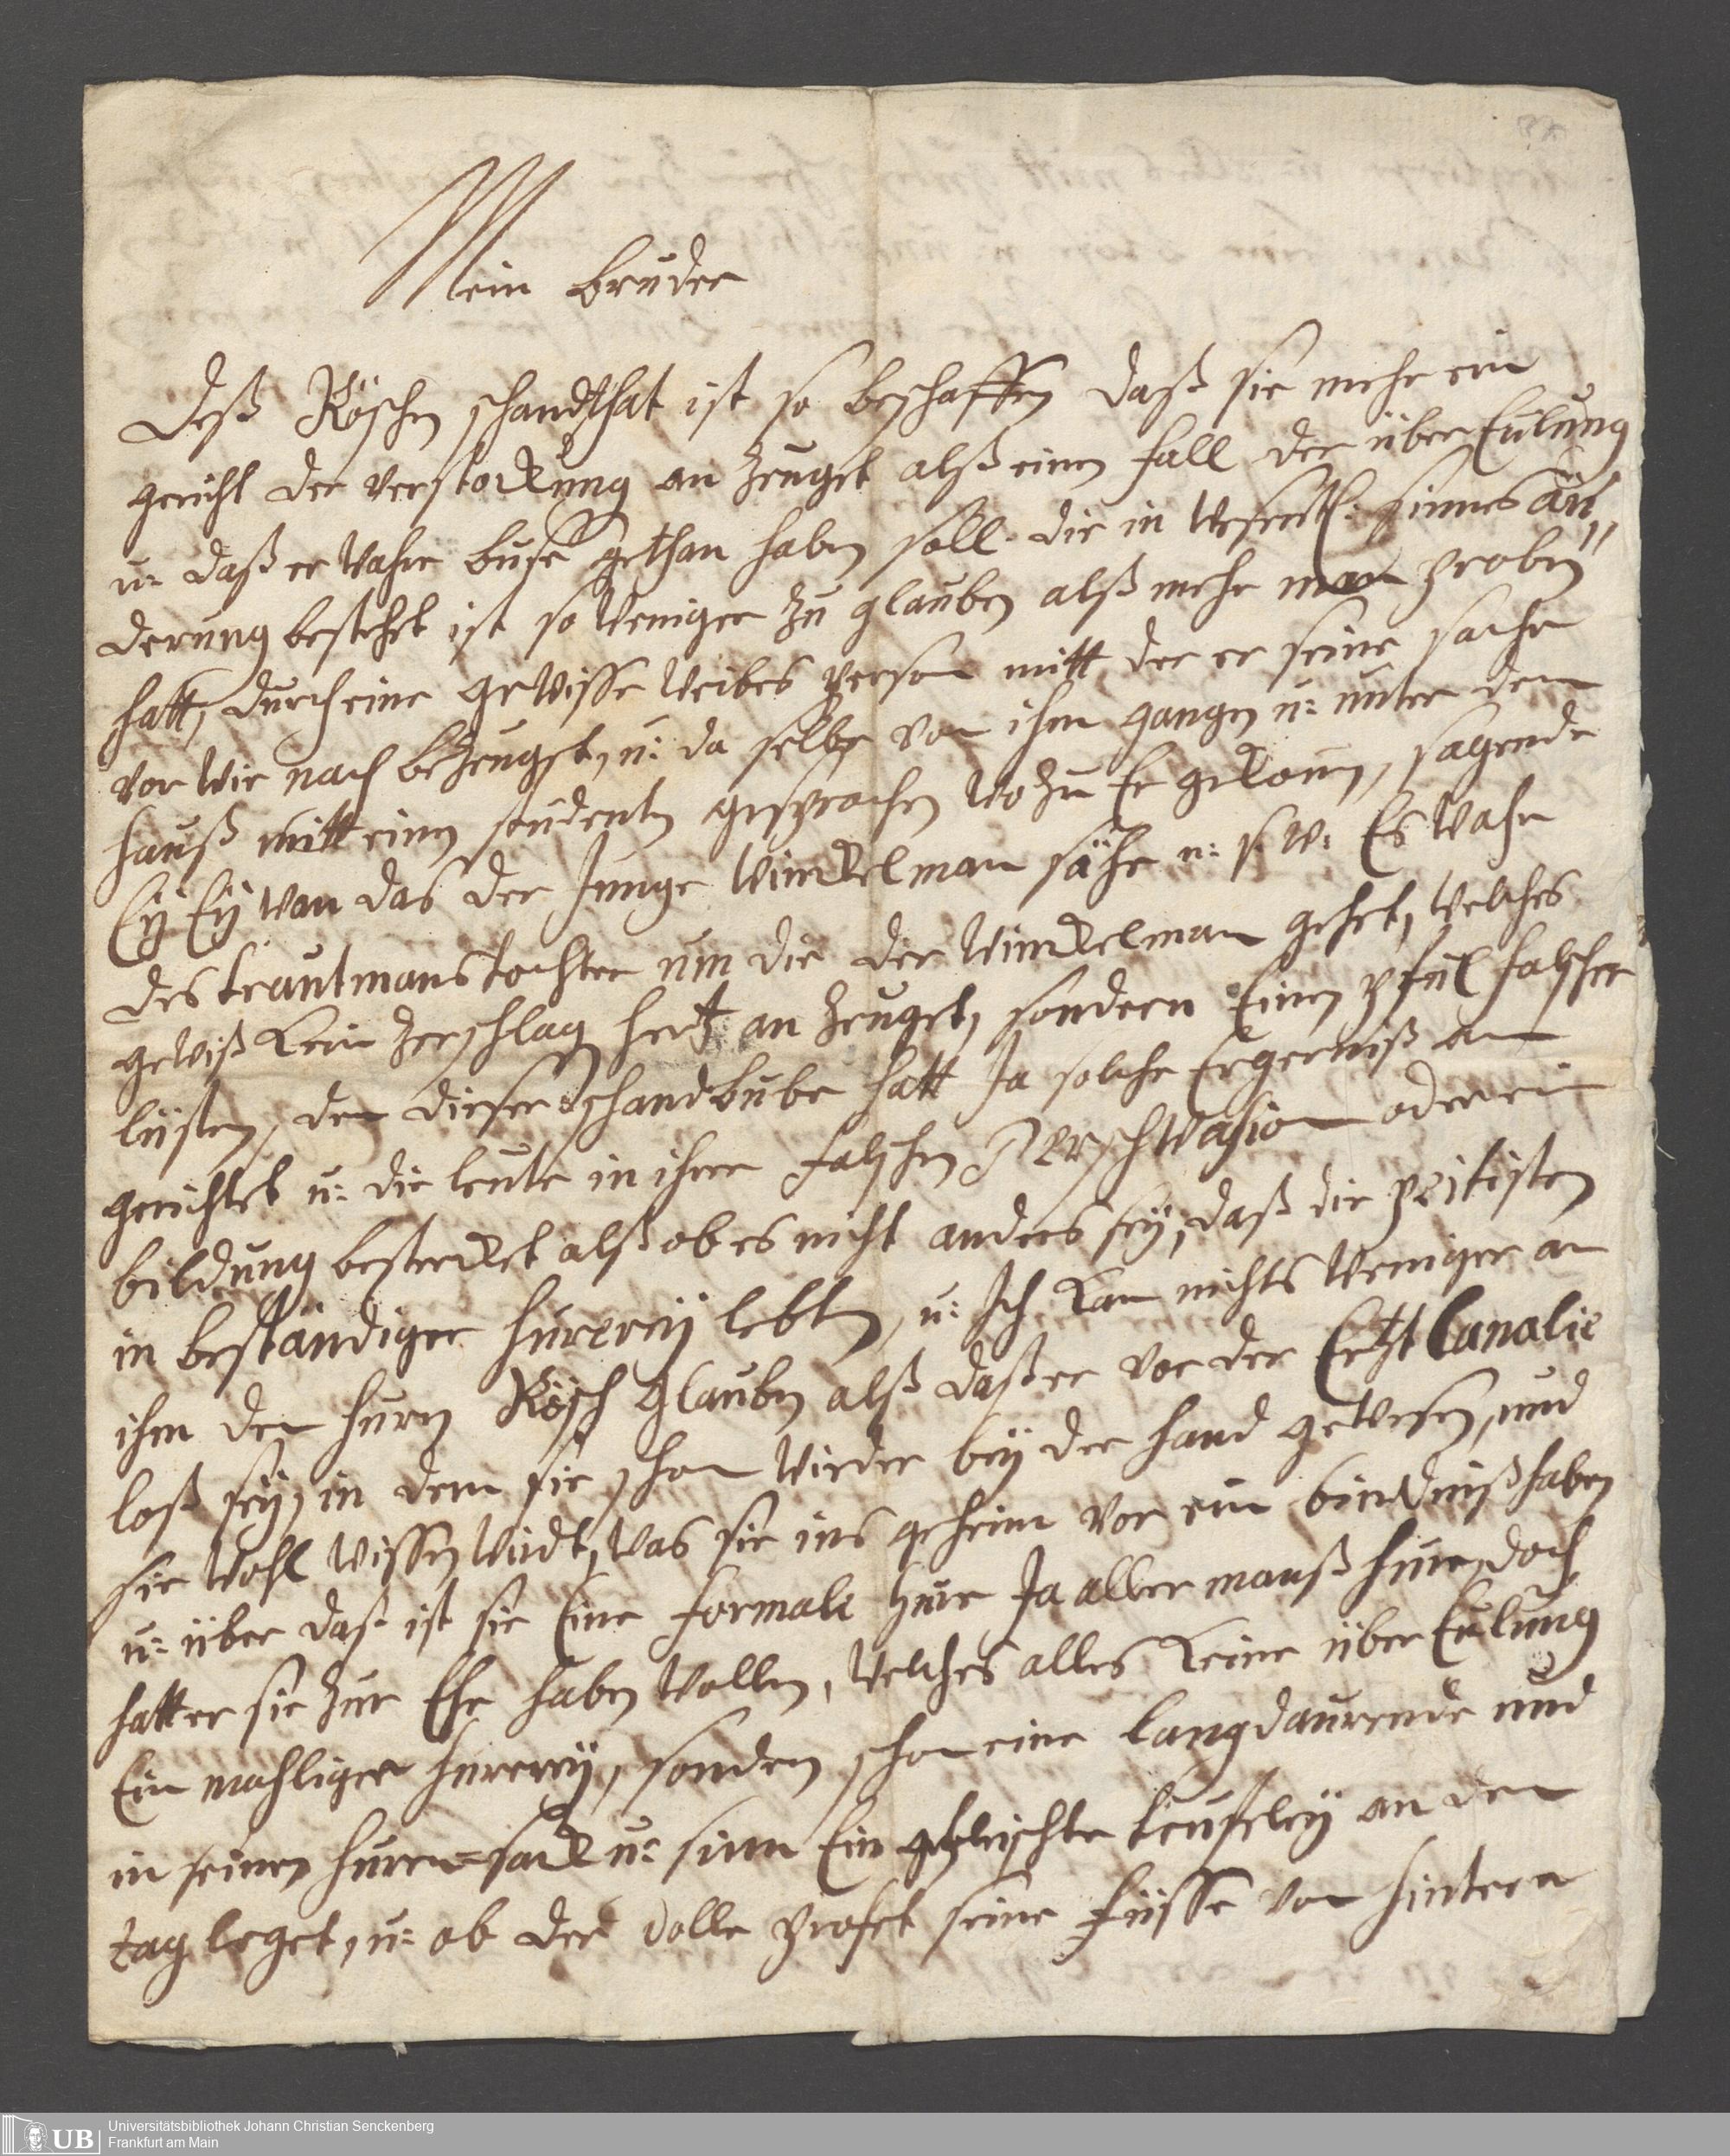 Mein bruder
Deß Röschen schandthat ist so beschaffen daß sie mehr ein
gericht der verstockung an zeuget alß einen fall der über Eülung
u: daß er wahre buße gethan haben soll. die in wesentl: sinnes än„
derung bestehet ist so weniger zu glauben alß mehr man proben
hatt, durch eine gewisse weibes person mitt der er seine sache
vor wie nach bezeuget, u: da selbe von ihm gangen u: unter dem
hauß mitt einem studenten gesprochen wozu Er gekomen, sagende
Eÿ Eÿ wan das der Junge Winckelman sähe u: s. w: Es wahr
des trautmans tochter um die der Winckelman gehet, welches
gewiß kein zerschlagen hertz an zeuget, sondern Einen pful falscher
lüsten, den dieser schandbube hatt Ja solche Ergerniß an
gerichtet u: die leute in ihrer falschen Perschwasion oder ein
bildung bestercket alß ob es nicht anders seÿ, daß die peitisten
in beständiger hurereÿ lebten, u: Ich kan nichts weniger an
ihm den huren Rösch glauben alß daß er von der Ertzt Canalie
loß seÿ, in dem sie schon wieder beÿ der hand gewesen, und
sie wohl wissen wirdt, was sie ins geheim vor ein bindniß haben
u: über daß ist sie Eine formale hure Ja aller manß hure, doch
hatt er sie zur Ehe haben wollen, welches alles keine über Eulung
Ein mahliger hurereÿ, sonden schon eine langdaurende und
in seinen huren=sack u: sinn Ein gefleischte teufeleÿ an den
tag leget, u: ob der dolle profet seine füsse von hintern
Universitätsbibliothek Johann Christian Senckenberg
Frankfurt am Main
UB